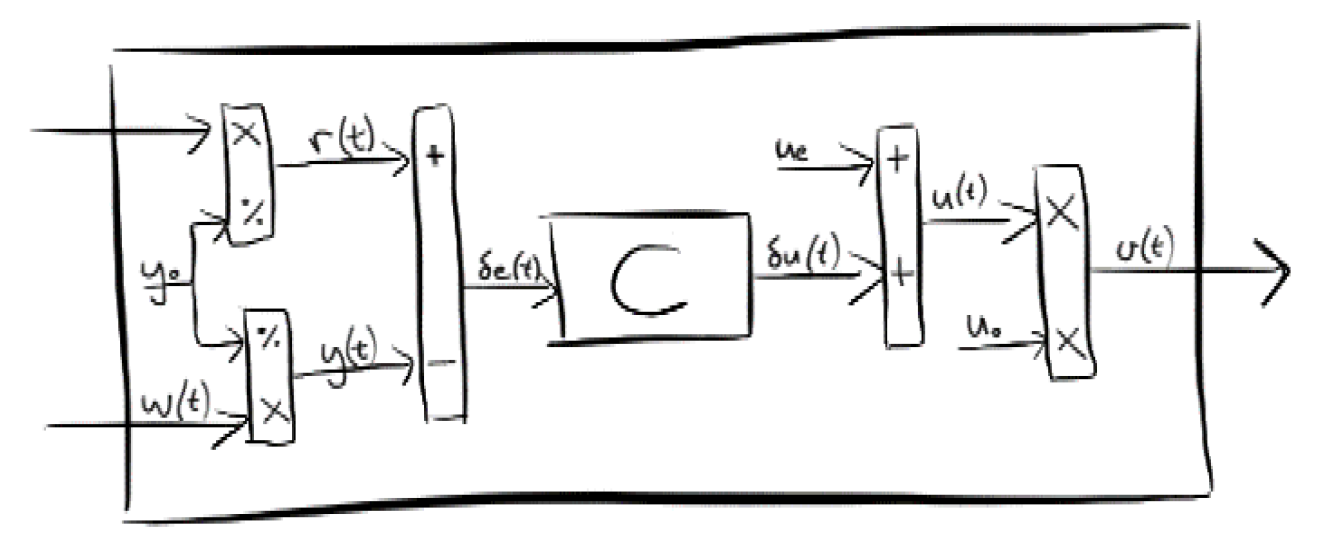 ×
÷
y₀
÷
w(t)
×
r(t)
y(t)
+
−
δe(t)
C
δu(t)
uₑ
+
+
u(t)
u₀
×
×
v(t)